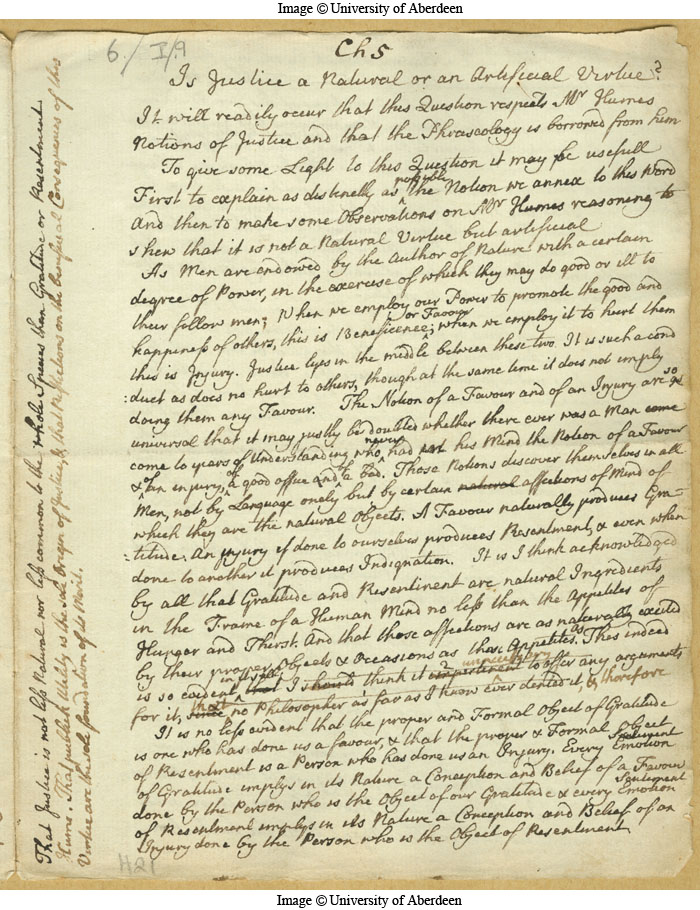 Image © University of Aberdeen
6./ I/9
Ch 5
Is Justice a Natural or an Artificial Virtue?
It will readily occur that this Question respects Mr Humes
Notions of Justice and that the Phraseology is borrowed from him
To give some Light to this Question it may be usefull
First to explain as distinctly as possible the Notion we annex to this Word
And then to make some Observations on Mr Humes reasoning to
shew that it is not a Natural Virtue but artificial
As Men are endowed by the Author of Nature with a certain
degree of Power, in the exercise of which they may do good or ill to
their fellow men; When we employ our Power to promote the good and
happiness of others, this is Beneficence or Favour; when we employ it to hurt them
this is Injury. Justice lyes in the middle between these two. It is such a cond
:duct as does no hurt to others, though at the same time it does not imply
doing them any Favour. The Notion of a Favour and of an Injury are so
universal that it may justly be doubted whether there ever was a Man come
come to years of Understanding who never had not his Mind the Notion of a Favour
& of an injury, of a good office and of a bad. These Notions discover themselves in all
Men, not by Language onely but by certain natural affections of Mind of
which they are the natural Objects. A Favour naturally produces Gra-
:titude. An injury if done to ourselves produces Resentment, & even when
done to another it produces Indignation. It is I think acknowledged
by all that Gratitude and Resentment are natural Ingredients
in the Frame of a Human Mind no less than the Appetites of
Hunger and Thirst. And that those affections are as naturally excited
by their proper Objects & Occasions as these Appetites. This indeed
is so evident in itself that I should think it unnecessary impertinent to offer any arguments
for it, since that no Philosopher as far as I know ever denied it, & therefore
It is no less evident that the proper and Formal Object of Gratitude
is one who has done us a favour, & that the proper & Formal Object
of Resentment is a Person who has done us an Injury. Every Sentiment Emotion
of Gratitude implys in its Nature a Conception and Belief of a Favour
done by the Person who is the Object of our Gratitude & every Sentiment Emotion
of Resentment implys in its Nature a Conception and Belief of an
Injury done by the Person who is the Object of Resentment
That Justice is not less Natural nor less common to the whole Species than Gratitude or Resentment
Hume. That publick Utility is the sole Origin of Justice, & that Reflections on the beneficial Consequences of this
Virtue are the sole foundation of its Merit.
H21
Image © University of Aberdeen